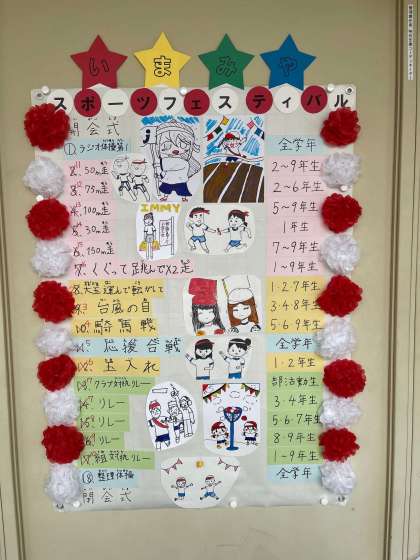 いまみや
スポーツフェスティバル
開会式
① ラジオ体操第1 全学年
50m走 2〜9年生
75m走 2〜6年生
100m走 5〜9年生
30m走 1年生
150m走 7〜9年生
くぐって跳んで×2走 1〜9年生
IMMY
大玉運んで転がして 1・2・7年生
台風の目 3・4・8年生
騎馬戦 5・6・9年生
応援合戦 全学年
玉入れ 1・2年生
クラブ対抗リレー 部活動生
リレー 3・4年生
リレー 5・6・7年生
リレー 8・9年生
組対抗リレー 1〜9年生
⑱ 整理体操 全学年
閉会式